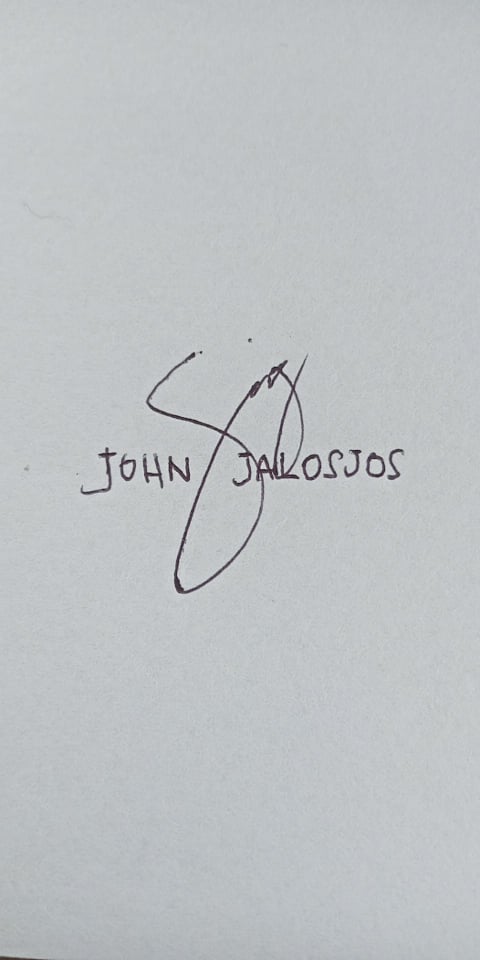 JOHN JALOSJOS